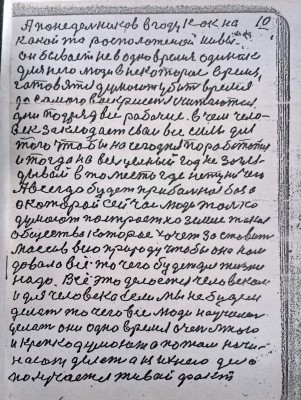 10
А понедельников в году как на
какой то расположеной ниви
он бывает не в одно время одинак
для него люди в некоторое время,
готовятя думают убит время
до самого воскресен считаются
дни подряд все рабочие. в чем чело-
век закладает сваи все силы для
того чтобы на сегодня поработат
и тогда на весь целый год не загля
дывай в то место где нету ничего
А всегда будет прибамбаная база
о которой сейчас люди только
думают построет на земле такая
общества которое хочет заставит
массив всю природу чтобы она нам
давала всё то чего будет для жизни
надо. Всё это делается человеком
и для человека если мы не будем
делат то чего все люди научилис
делат они одно время очен много
и крепко думают а потом начи-
нают делат а из него дело
получается живой факт